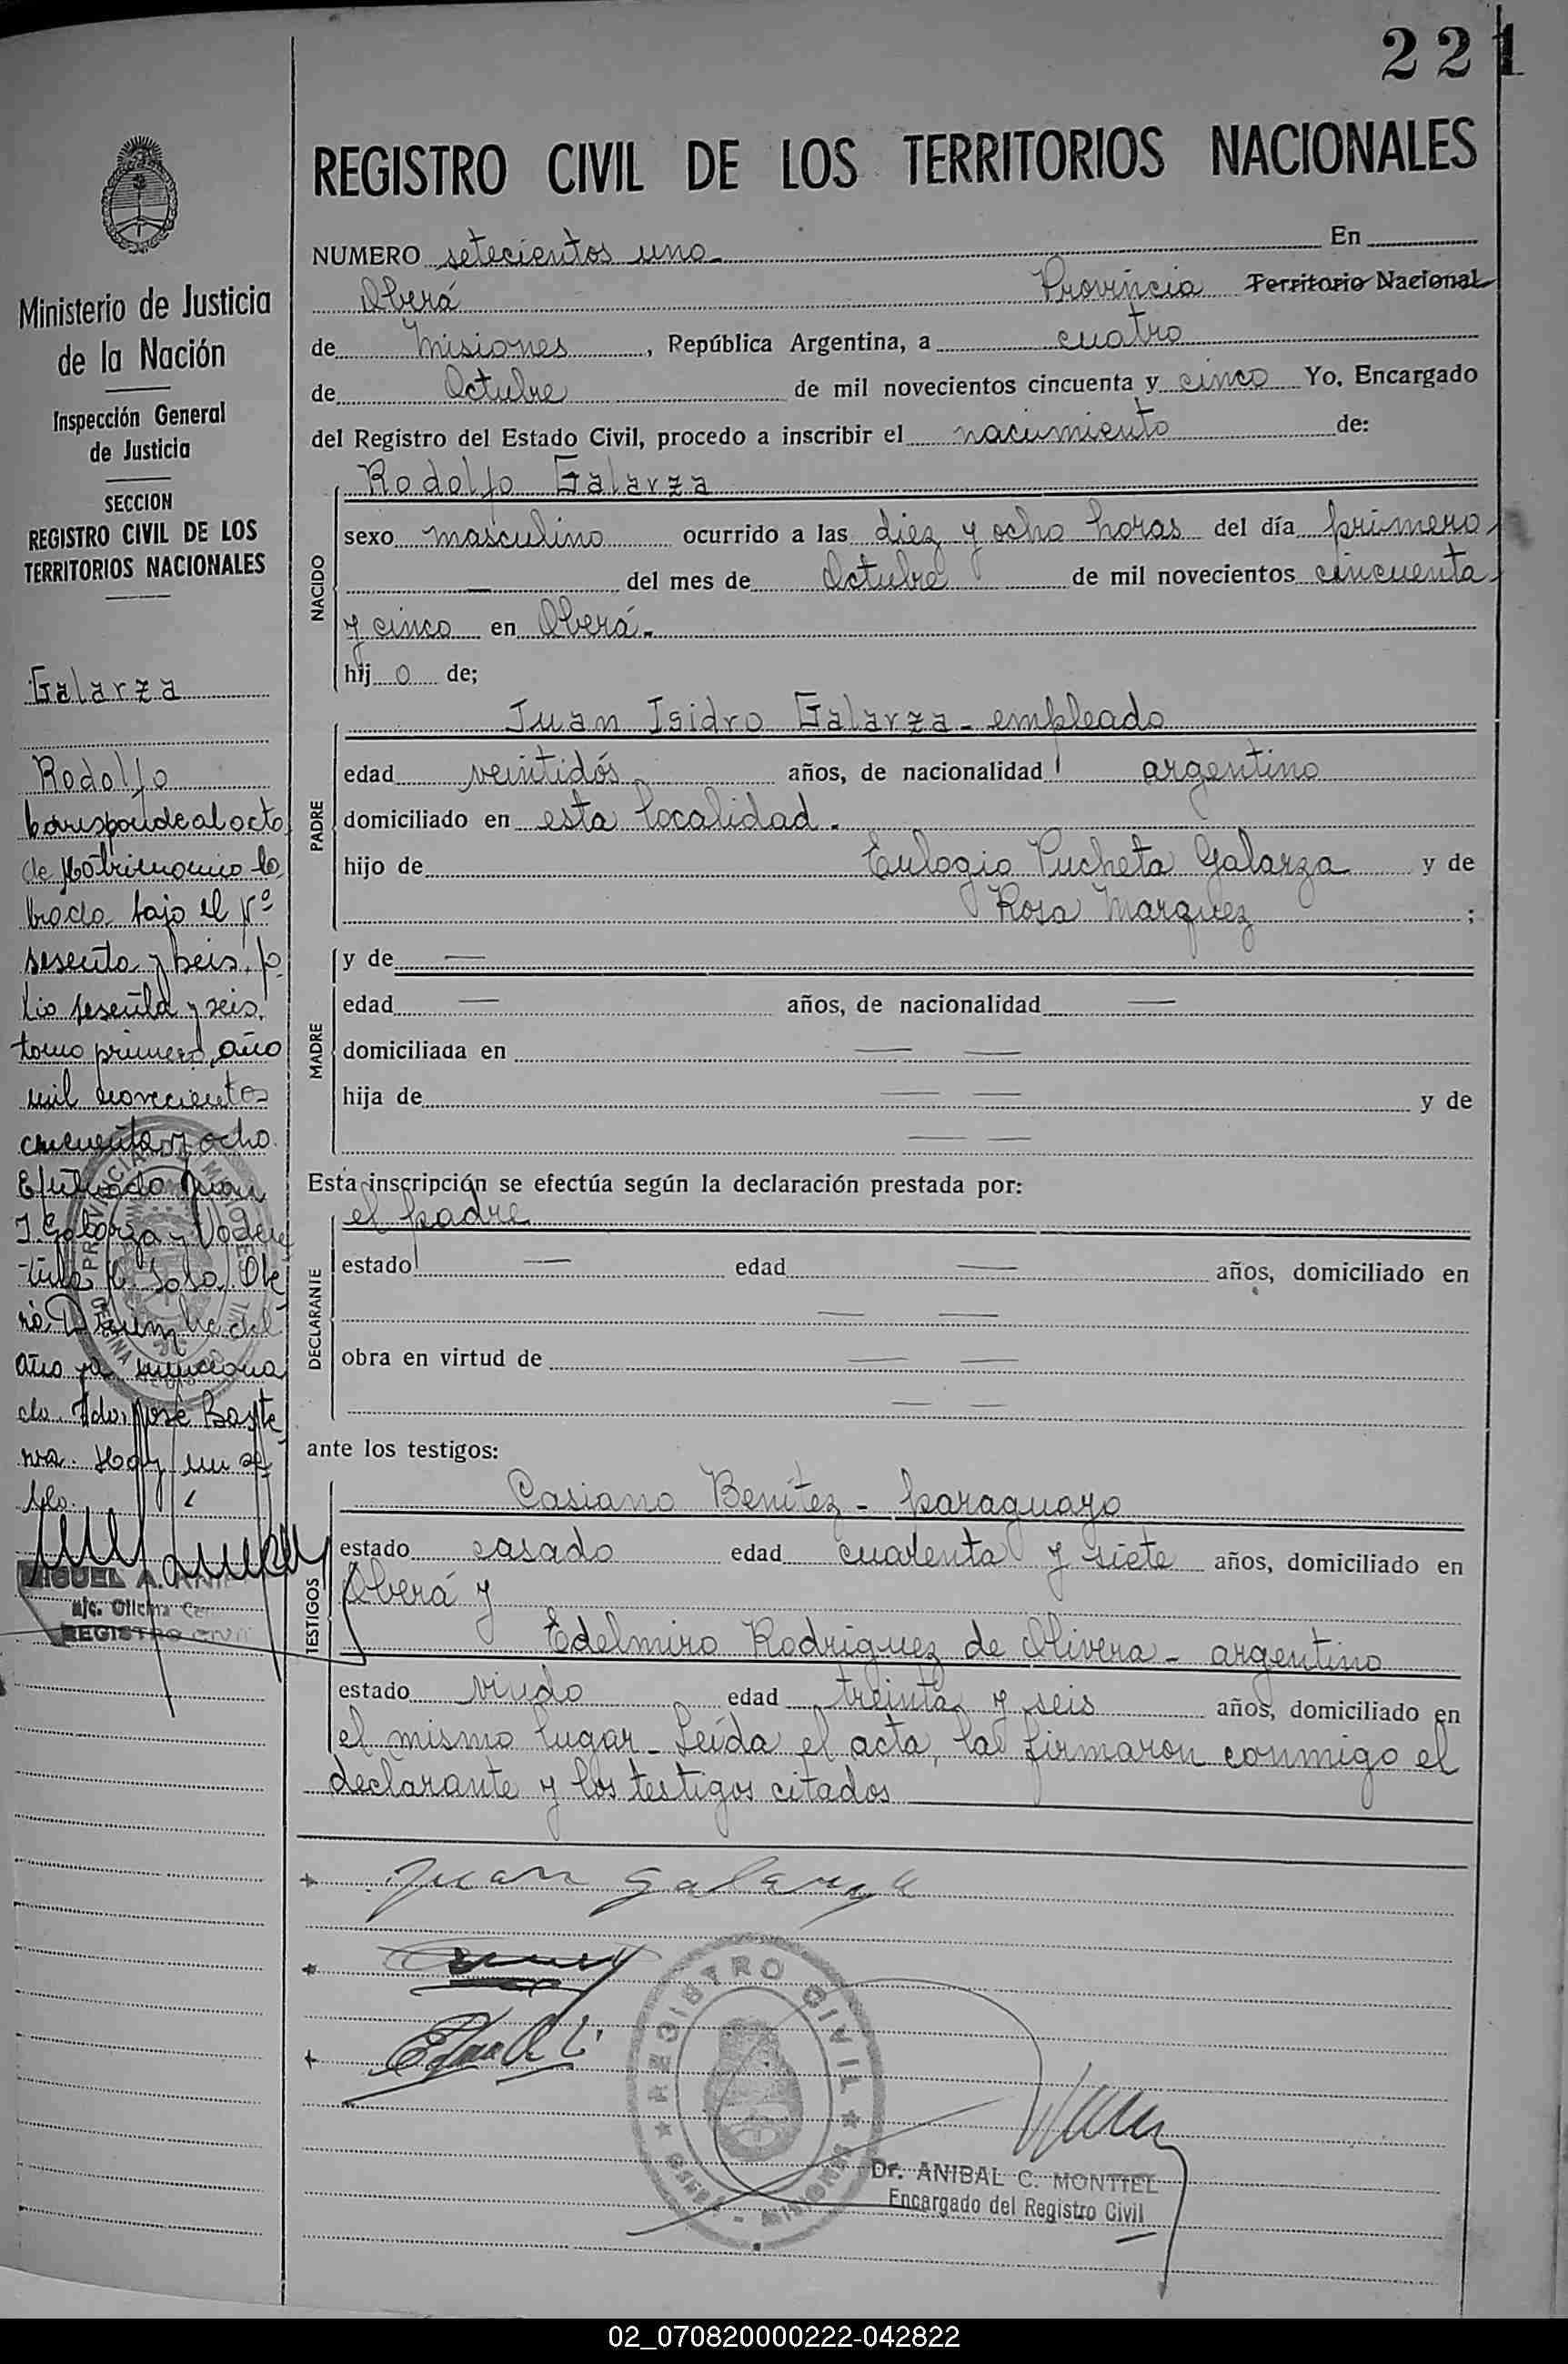 221
REGISTRO CIVIL DE LOS TERRITORIOS NACIONALES
NUMERO setecientos uno En
Oberá Provincia Territorio Nacional
de Misiones, República Argentina, a cuatro
de Octubre de mil novecientos cincuenta y cinco Yo, Encargado
del Registro del Estado Civil, procedo a inscribir el nacimiento de:
NACIDO
Rodolfo Galarza
sexo masculino ocurrido a las diez y ocho horas del día primero
— del mes de Octubre de mil novecientos cincuenta
y cinco en Oberá.
hij o de;
PADRE
Juan Isidro Galarza - empleado
edad veintidós años, de nacionalidad argentino
domiciliado en esta localidad.
hijo de Eulogio Pucheta Galarza y de
Rosa Marquez ;
MADRE
y de —
edad — años, de nacionalidad —
domiciliada en — —
hija de — — y de
— —
Esta inscripción se efectúa según la declaración prestada por:
DECLARANTE
el padre
estado — edad — años, domiciliado en
— —
obra en virtud de — —
— —
ante los testigos:
TESTIGOS
Casiano Benítez - paraguayo
estado casado edad cuarenta y siete años, domiciliado en
Oberá y
Edelmiro Rodriguez de Olivera - argentino
estado viudo edad treinta y seis años, domiciliado en
el mismo lugar - Leída el acta, la firmaron conmigo el
declarante y los testigos citados
Juan Galarza
REGISTRO CIVIL
OBERÁ - MISIONES
Dr. ANIBAL C. MONTIEL
Encargado del Registro Civil
Ministerio de Justicia
de la Nación
Inspección General
de Justicia
SECCION
REGISTRO CIVIL DE LOS
TERRITORIOS NACIONALES
Galarza
Rodolfo
Corresponde al acto
de Matrimonio la
brado bajo el Nº
sesenta y seis, fo
lio sesenta y seis,
tomo primero, año
mil novecientos
cincuenta y ocho.
Juan
J. Galarza y
Sosa. Obe
rá, del
año ya menciona
do. Fdo. José
Hay un se
llo.
MIGUEL A.
a/c. Oficina
REGISTRO CIVIL
02_070820000222-042822